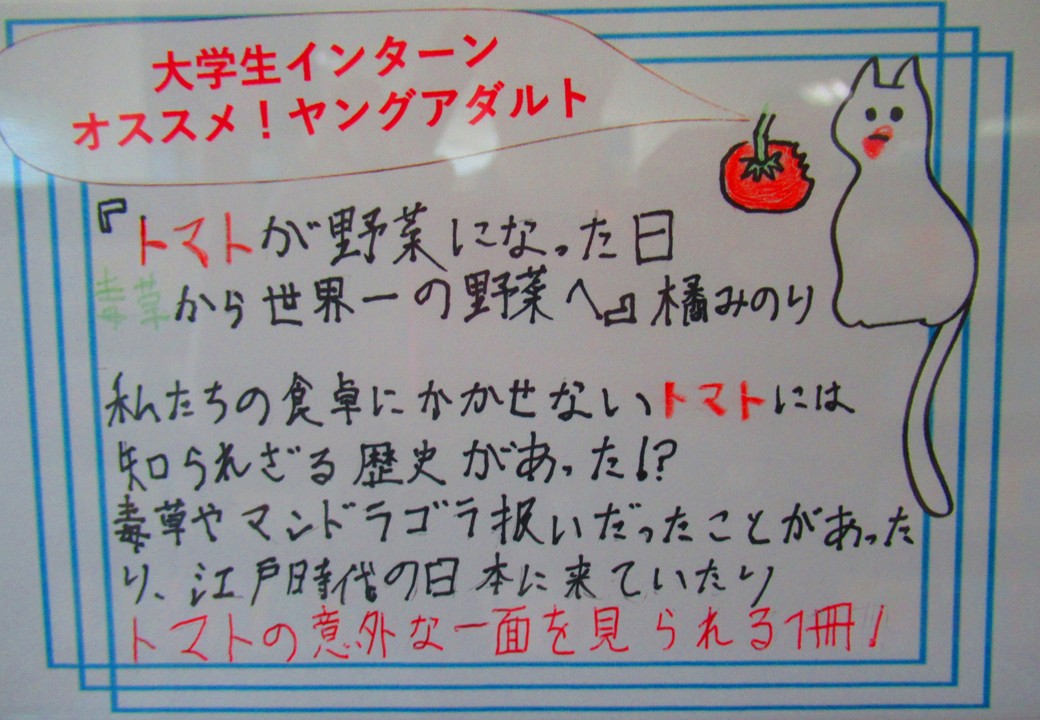 大学生インターン
オススメ！ヤングアダルト
『トマトが野菜になった日
毒草から世界一の野菜へ』橘みのり
私たちの食卓にかかせないトマトには
知られざる歴史があった!?
毒草やマンドラゴラ扱いだったことがあった
り、江戸時代の日本に来ていたり
トマトの意外な一面を見られる1冊！